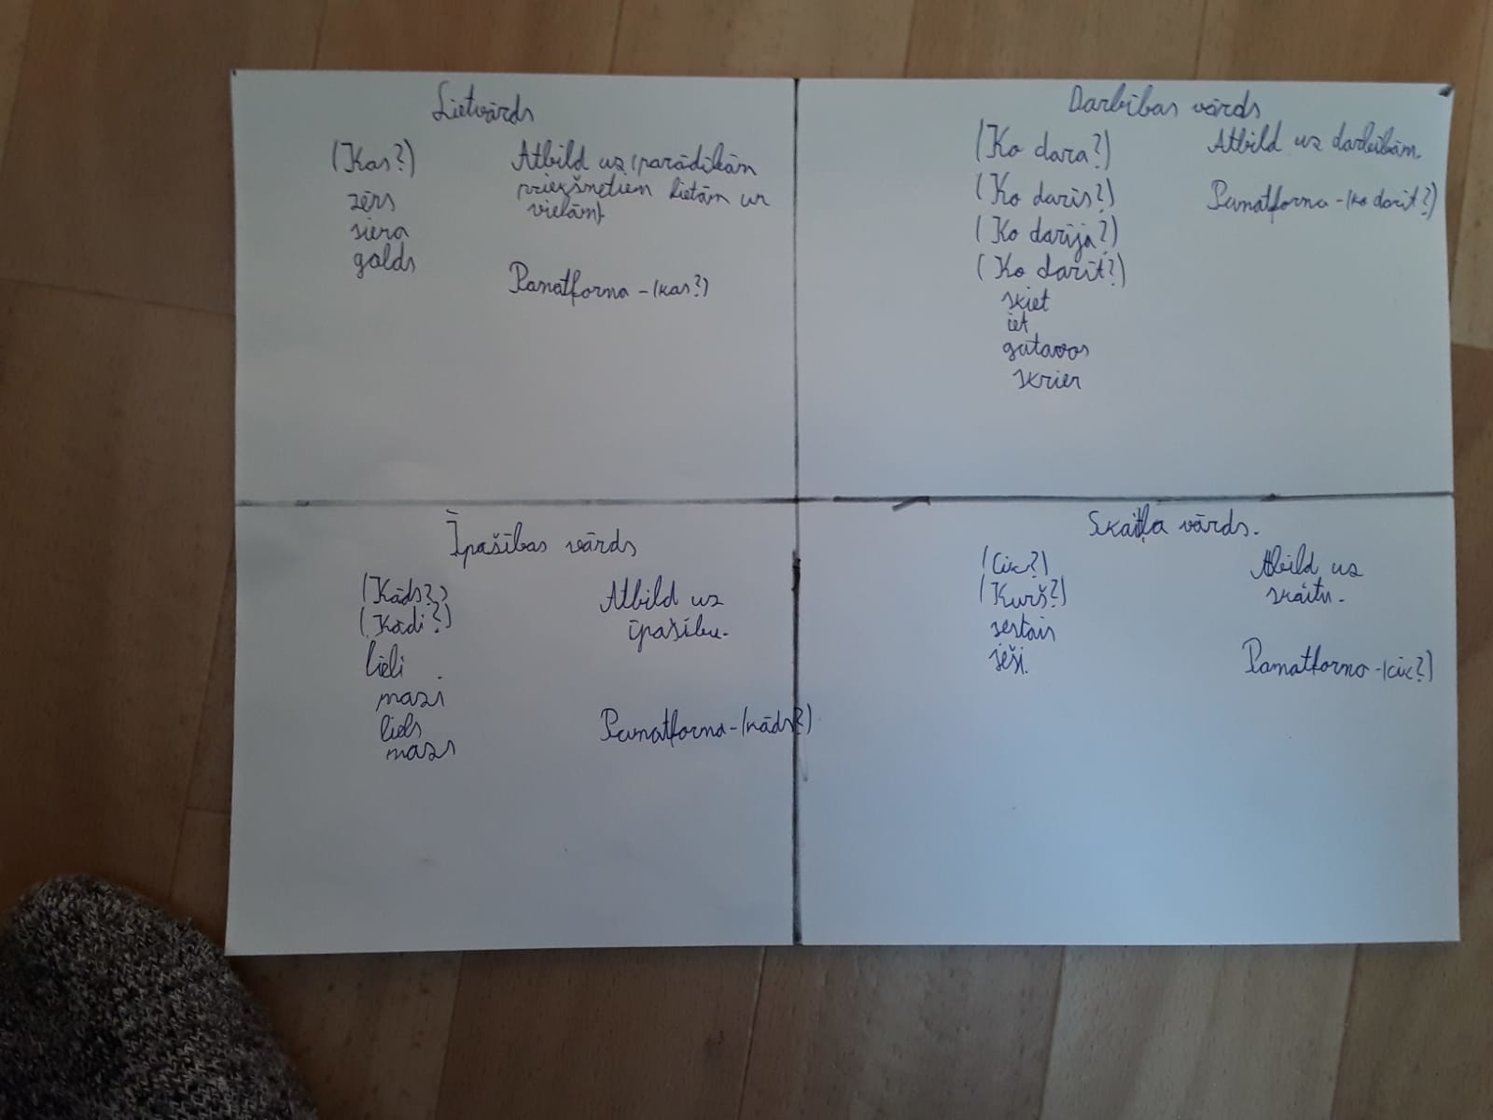 Lietvārds
(Kas?)
zērs
siera
galds
Atbild uz (parādībām
priekšmetiem lietām un
vielām)
Pamatforma - (kas?)
Darbības vārds
(Ko dara?)
(Ko darīs?)
(Ko darīja?)
(Ko darīt?)
skiet
iet
gatavos
skrien
Atbild uz darbībām.
Pamatforma - (ko darīt?)
Īpašības vārds
(Kāds?)
(Kādi?)
lieli
mazi
liels
mazs
Atbild uz
īpašību.
Pamatforma - (kāds?)
Skaitļa vārds.
(Cik?)
(Kurš?)
sestais
seši.
Atbild uz
skaitu.
Pamatforma - (cik?)